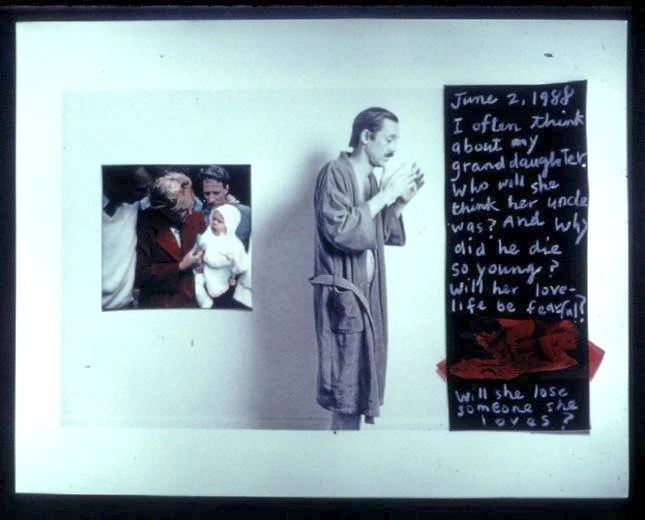 June 2, 1988
I often think
about my
granddaughter.
Who will she
think her uncle
was? And why
did he die
so young?
Will her love-
life be fearful?
Will she lose
someone she
loves?